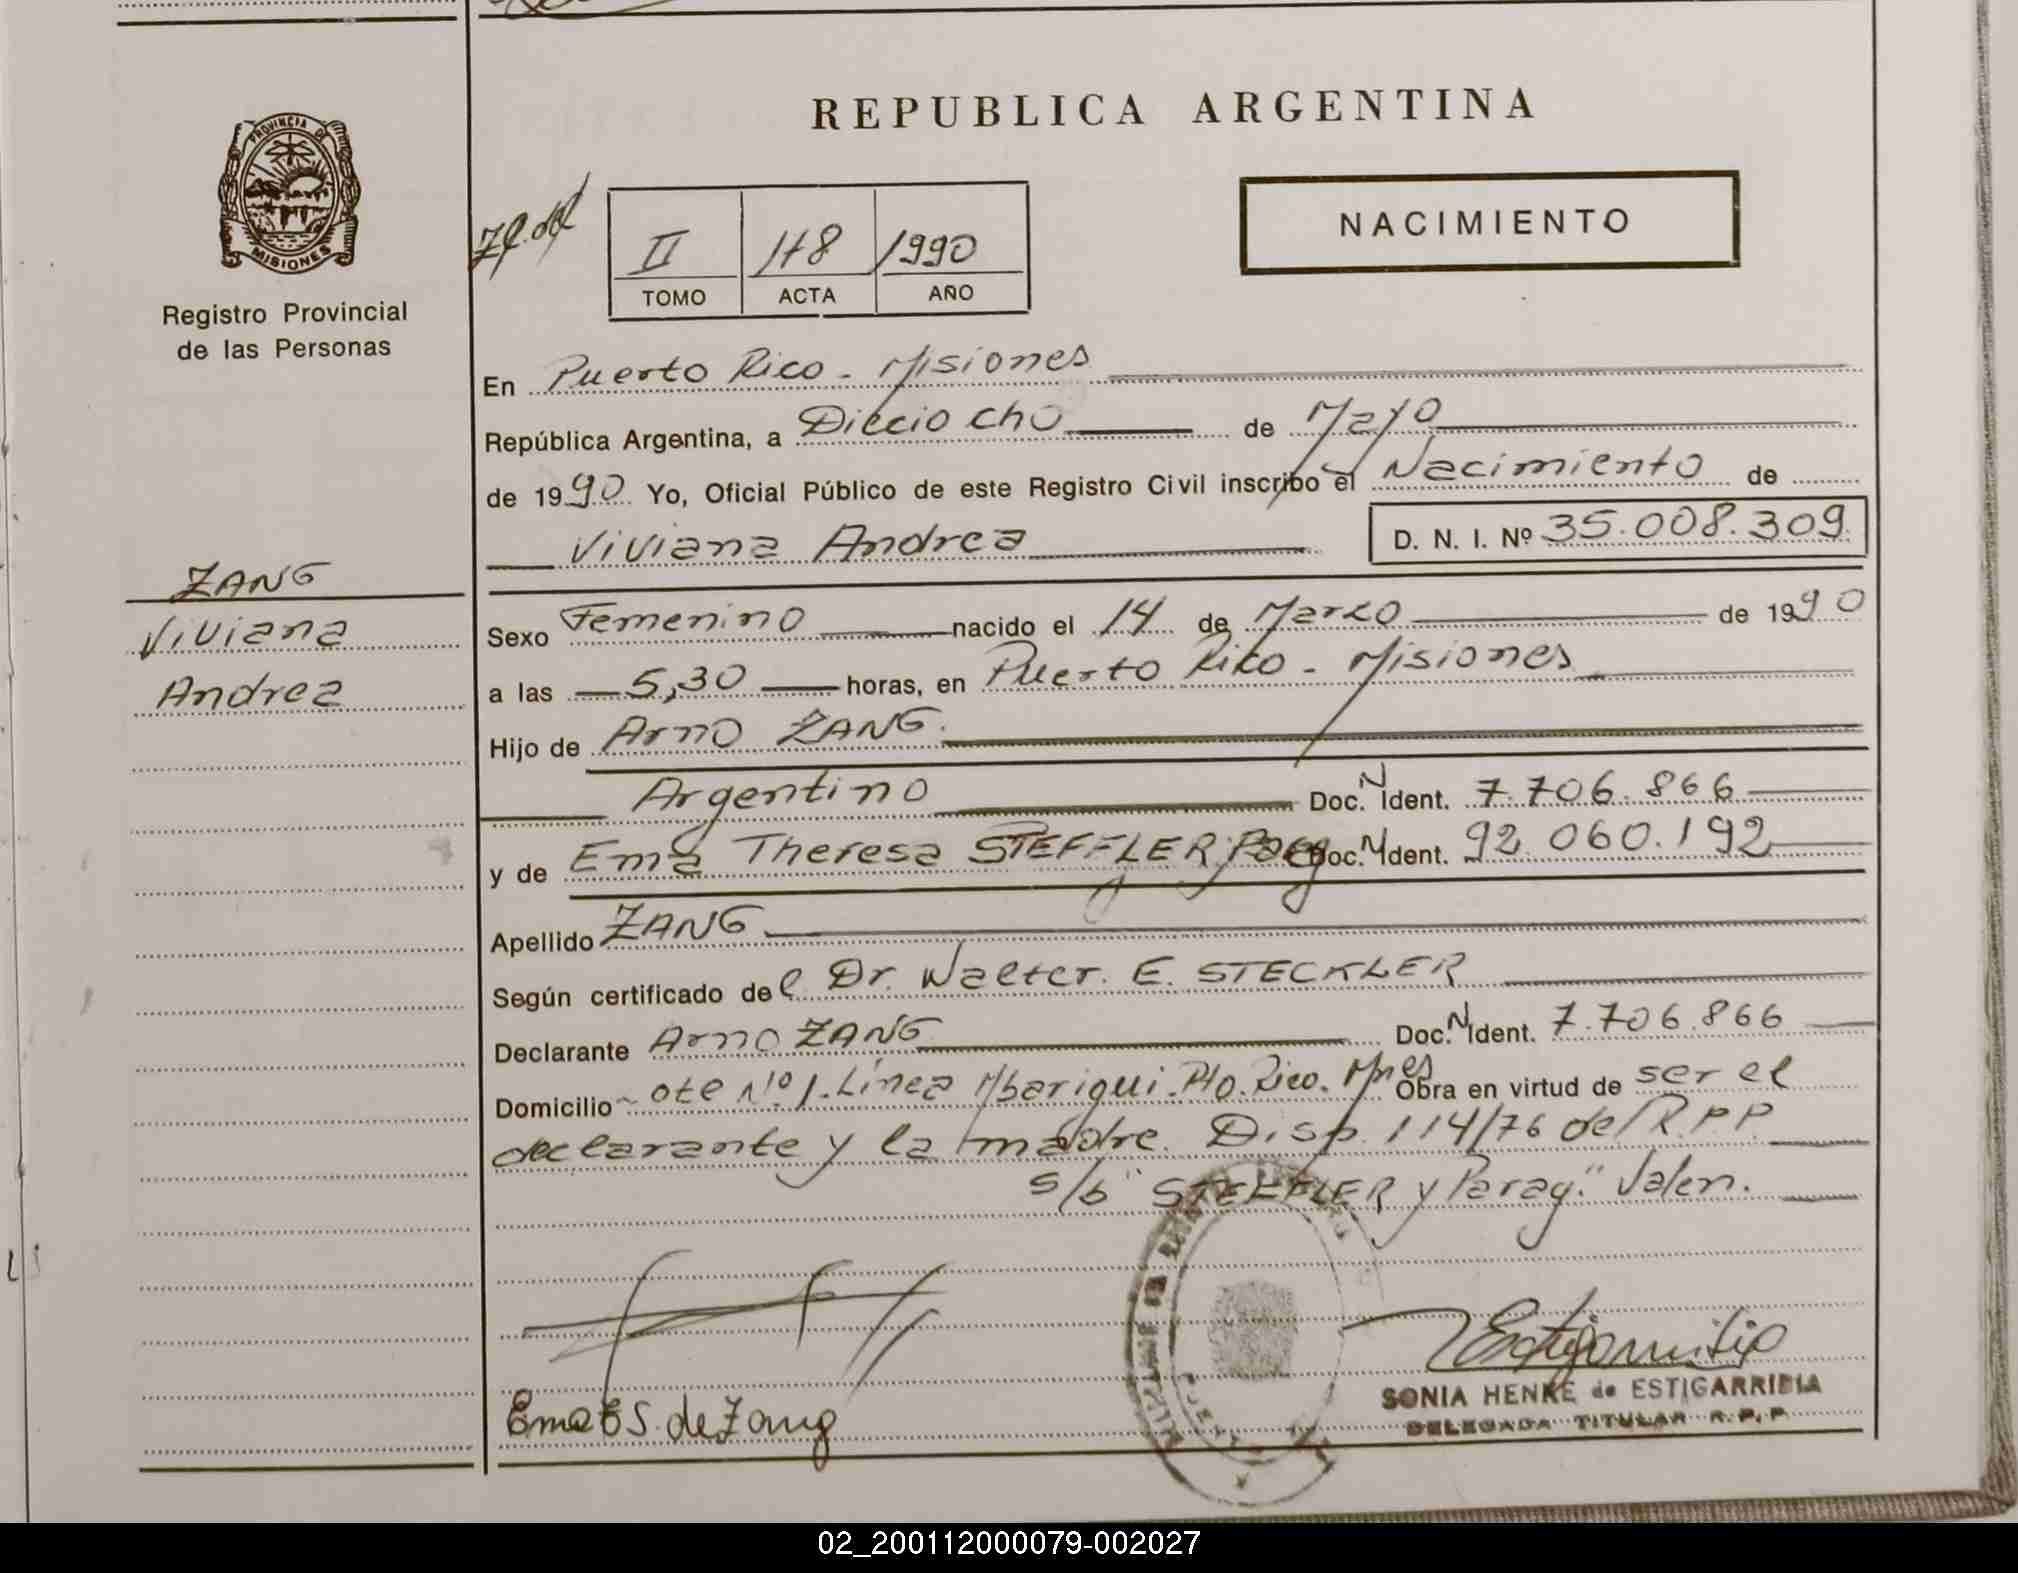 REPUBLICA ARGENTINA
PROVINCIA DE
MISIONES
Registro Provincial
de las Personas
II 118 1990
TOMO ACTA AÑO
NACIMIENTO
En Puerto Rico - Misiones
República Argentina, a Dieciocho de Mayo
de 1990 Yo, Oficial Público de este Registro Civil inscribo el Nacimiento de
Viviana Andrea D. N. I. Nº 35.008.309
ZANG
Viviana
Andrea
Sexo Femenino nacido el 14 de Marzo de 1990
a las 5,30 horas, en Puerto Rico - Misiones
Hijo de Arno ZANG
Argentino Doc. N Ident. 7.706.866
y de Ema Theresa STEFFLER, Parag Doc. N Ident. 92.060.192
Apellido ZANG
Según certificado del Dr. Walter. E. STECKLER
Declarante Arno ZANG Doc. N Ident. 7.706.866
Domicilio Lote Nº 1. Línea Mbarigui. Pto. Rico. Mnes Obra en virtud de ser el
declarante y la madre. Disp. 114/76 del R.P.P
s/b "STEFFLER y Parag." Valen.
Ema T S. de Zang
SONIA HENKE de ESTIGARRIBIA
DELEGADA TITULAR R. P. P.
02_200112000079-002027